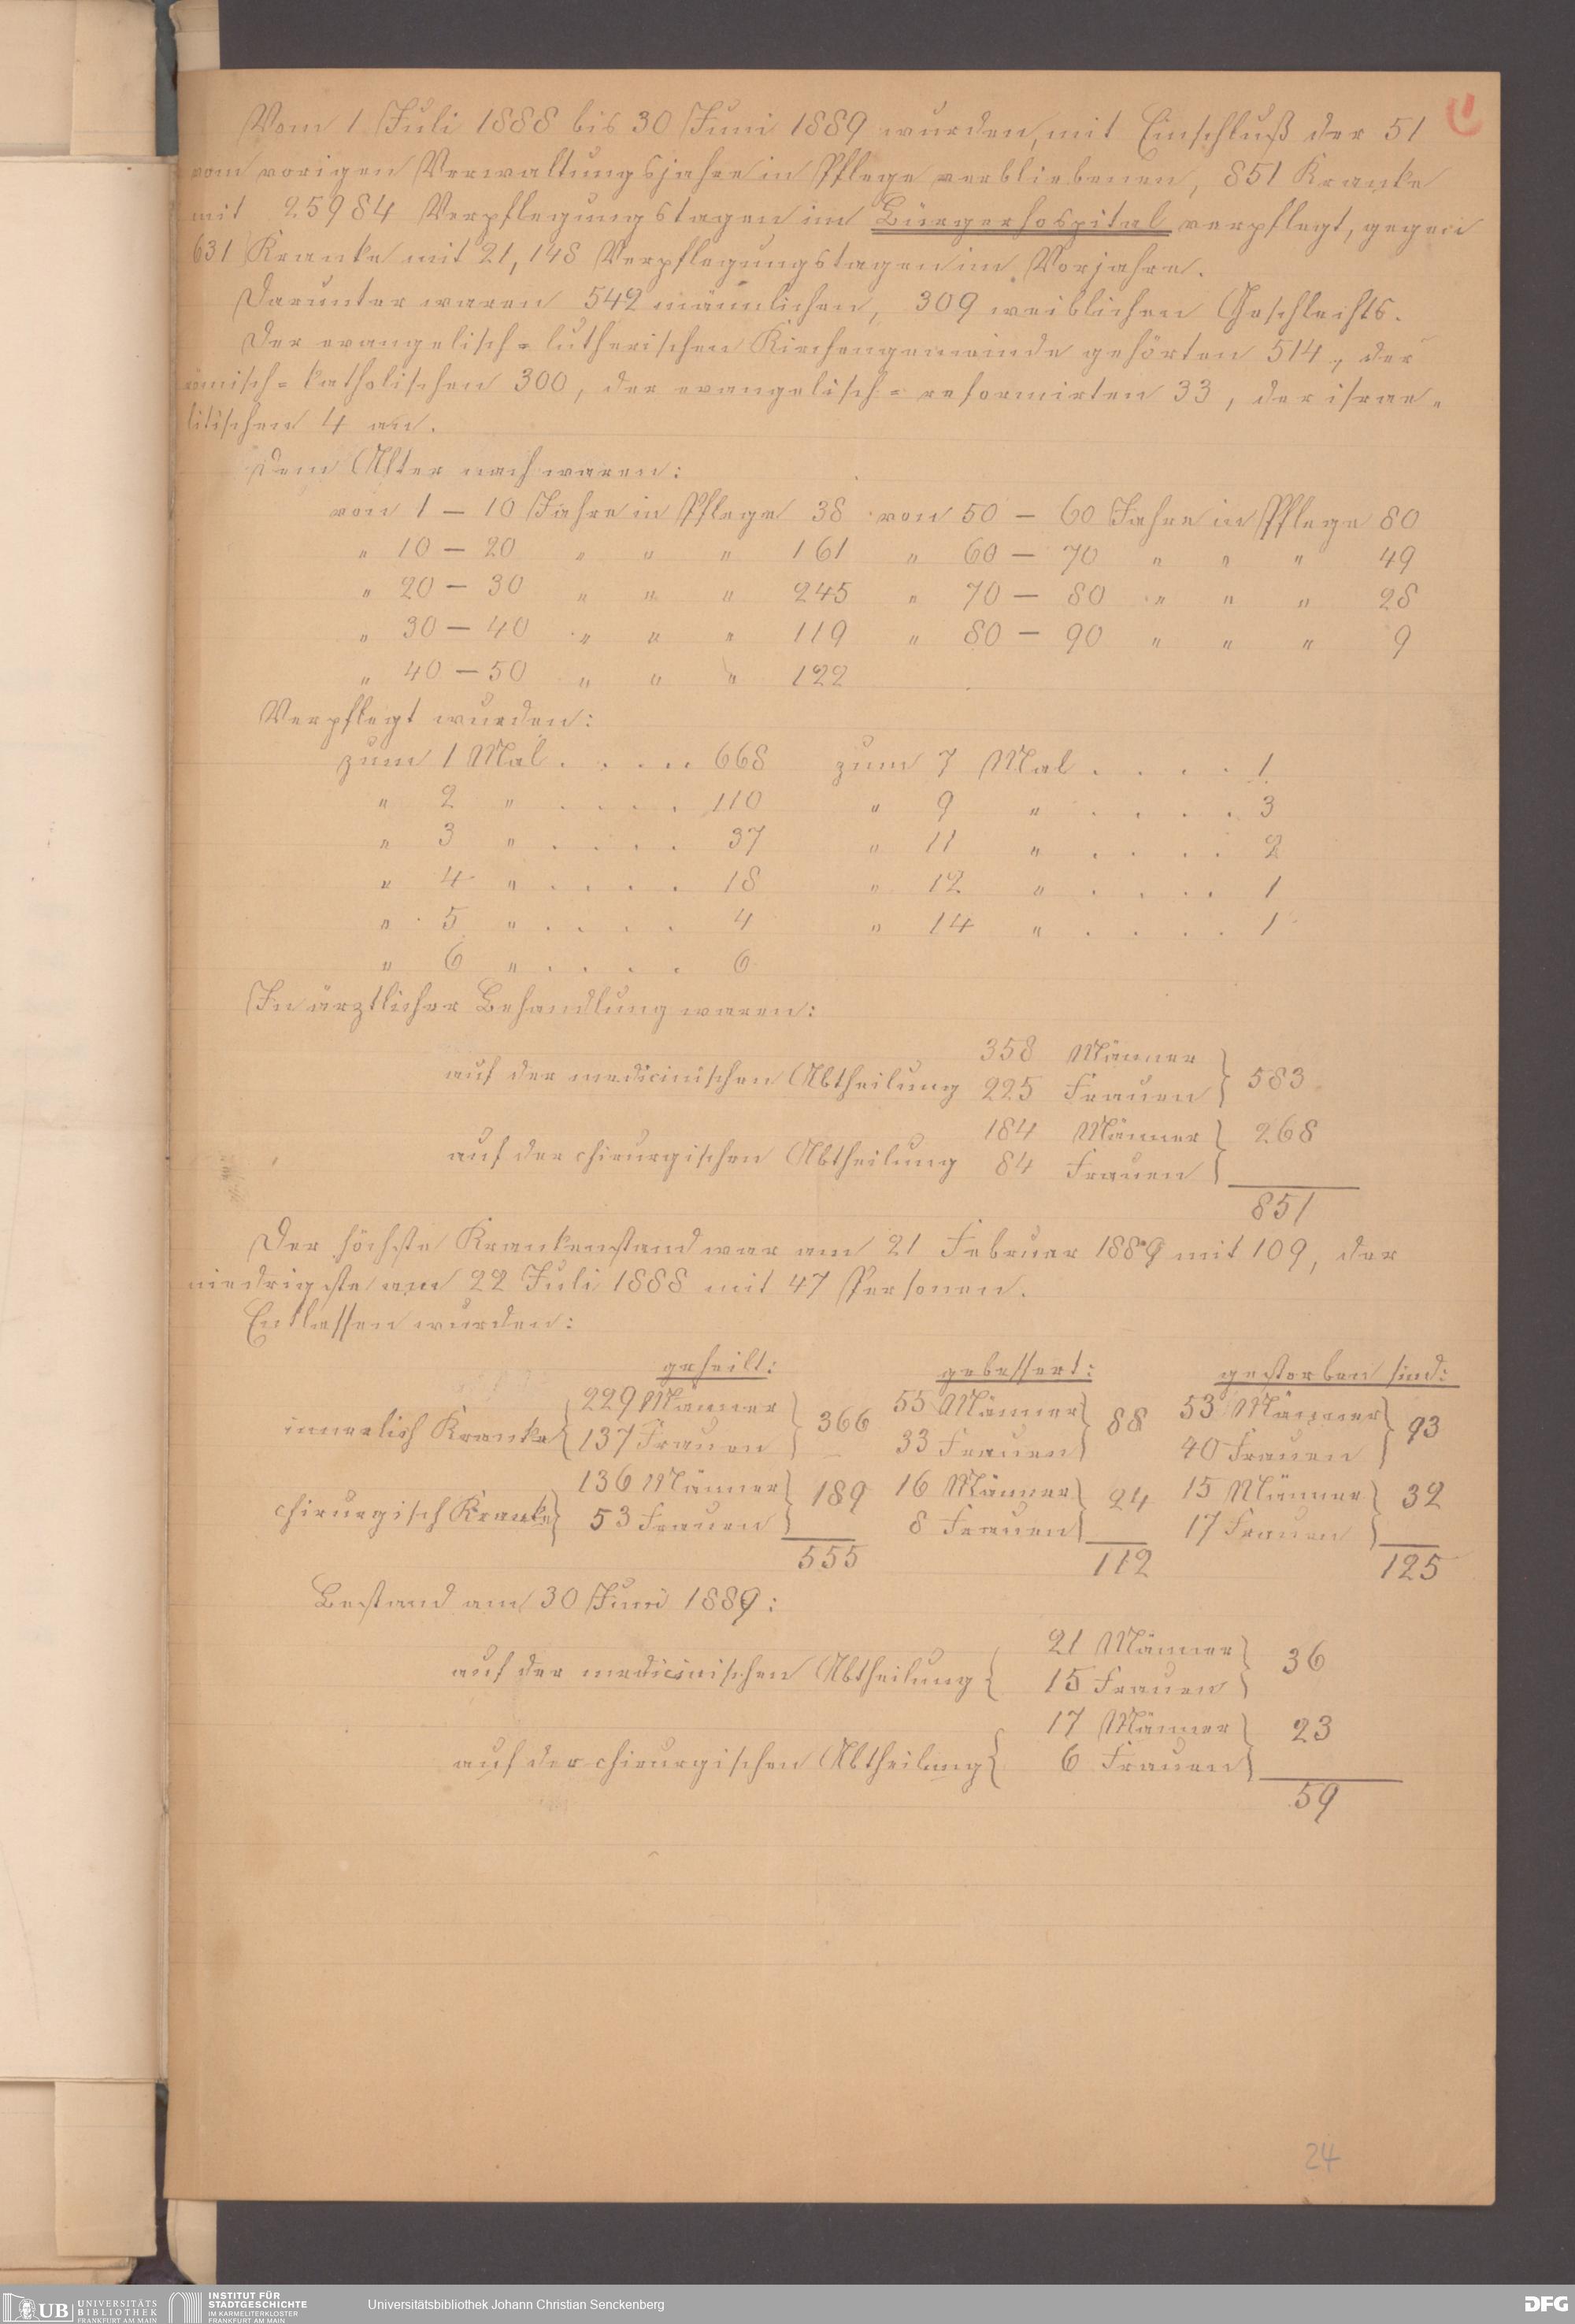 Vom 1 Juli 1888 bis 30 Juni 1889 wurden, mit Einschluß der 51
vom vorigen Verwaltungsjahre in Pflege verbliebenen, 851 Kranke
mit 25984 Verpflegungstagen im Bürgerhospital verpflegt, gegen
631 Kranke mit 21,148 Verpflegungstagen im Vorjahre.
Darunter waren 542 männlichen, 309 weiblichen Geschlechts.
Der evangelisch=lutherischen Kirchengemeinde gehörten 514, der
römisch=katholischen 300, der evangelisch=reformirten 33, der israe=
litischen 4 an.
Dem Alter nach waren:
von 1 – 10 Jahre in Pflege 38 von 50 – 60 Jahre in Pflege 80
" 10 – 20 " " " 161 " 60 – 70 " " " 49
" 20 – 30 " " " 245 " 70 – 80 " " " 28
" 30 – 40 " " " 119 " 80 – 90 " " " 9
" 40 – 50 " " " 122
Verpflegt wurden:
zum 1 Mal . . . . . 668 zum 7 Mal . . . . 1
" 2 " . . . . 110 " 9 " . . . . 3
" 3 " . . . . 37 " 11 " . . . . 2
" 4 " . . . . 18 " 12 " . . . . 1
" 5 " . . . . 4 " 14 " . . . . 1
" 6 " . . . . 6
In ärztlicher Behandlung waren:
358 Männer
auf der medicinischen Abtheilung 225 Frauen } 583
184 Männer } 268
auf der chirurgischen Abtheilung 84 Frauen
851
Der höchste Krankenstand war am 21 Februar 1889 mit 109, der
niedrigste am 22 Juli 1888 mit 47 Personen.
Entlassen wurden:
geheilt: gebessert: gestorben sind:
229 Männer 55 Männer 53 Männer
innerlich Kranke { 137 Frauen } 366 33 Frauen } 88 40 Frauen } 93
136 Männer } 189 16 Männer } 24 15 Männer } 32
chirurgisch Kranke } 53 Frauen 8 Frauen 17 Frauen
555 112 125
Bestand am 30 Juni 1889:
21 Männer
auf der medicinischen Abtheilung { 15 Frauen } 36
17 Männer } 23
auf der chirurgischen Abtheilung { 6 Frauen
59
24
UB UNIVERSITÄTS
BIBLIOTHEK
FRANKFURT AM MAIN
INSTITUT FÜR
STADTGESCHICHTE
IM KARMELITERKLOSTER
FRANKFURT AM MAIN
Universitätsbibliothek Johann Christian Senckenberg
DFG